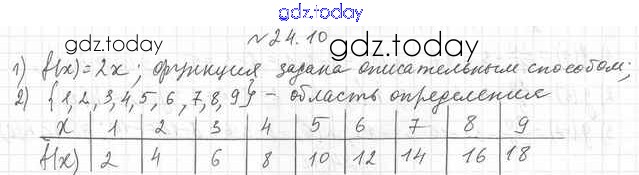 gdz.today
№24.10
gdz.today gdz.today
1) f(x)=2x; функция задана описательным способом;
2) {1,2,3,4,5,6,7,8,9} - область определения
x 1 2 3 4 5 6 7 8 9
f(x) 2 4 6 8 10 12 14 16 18